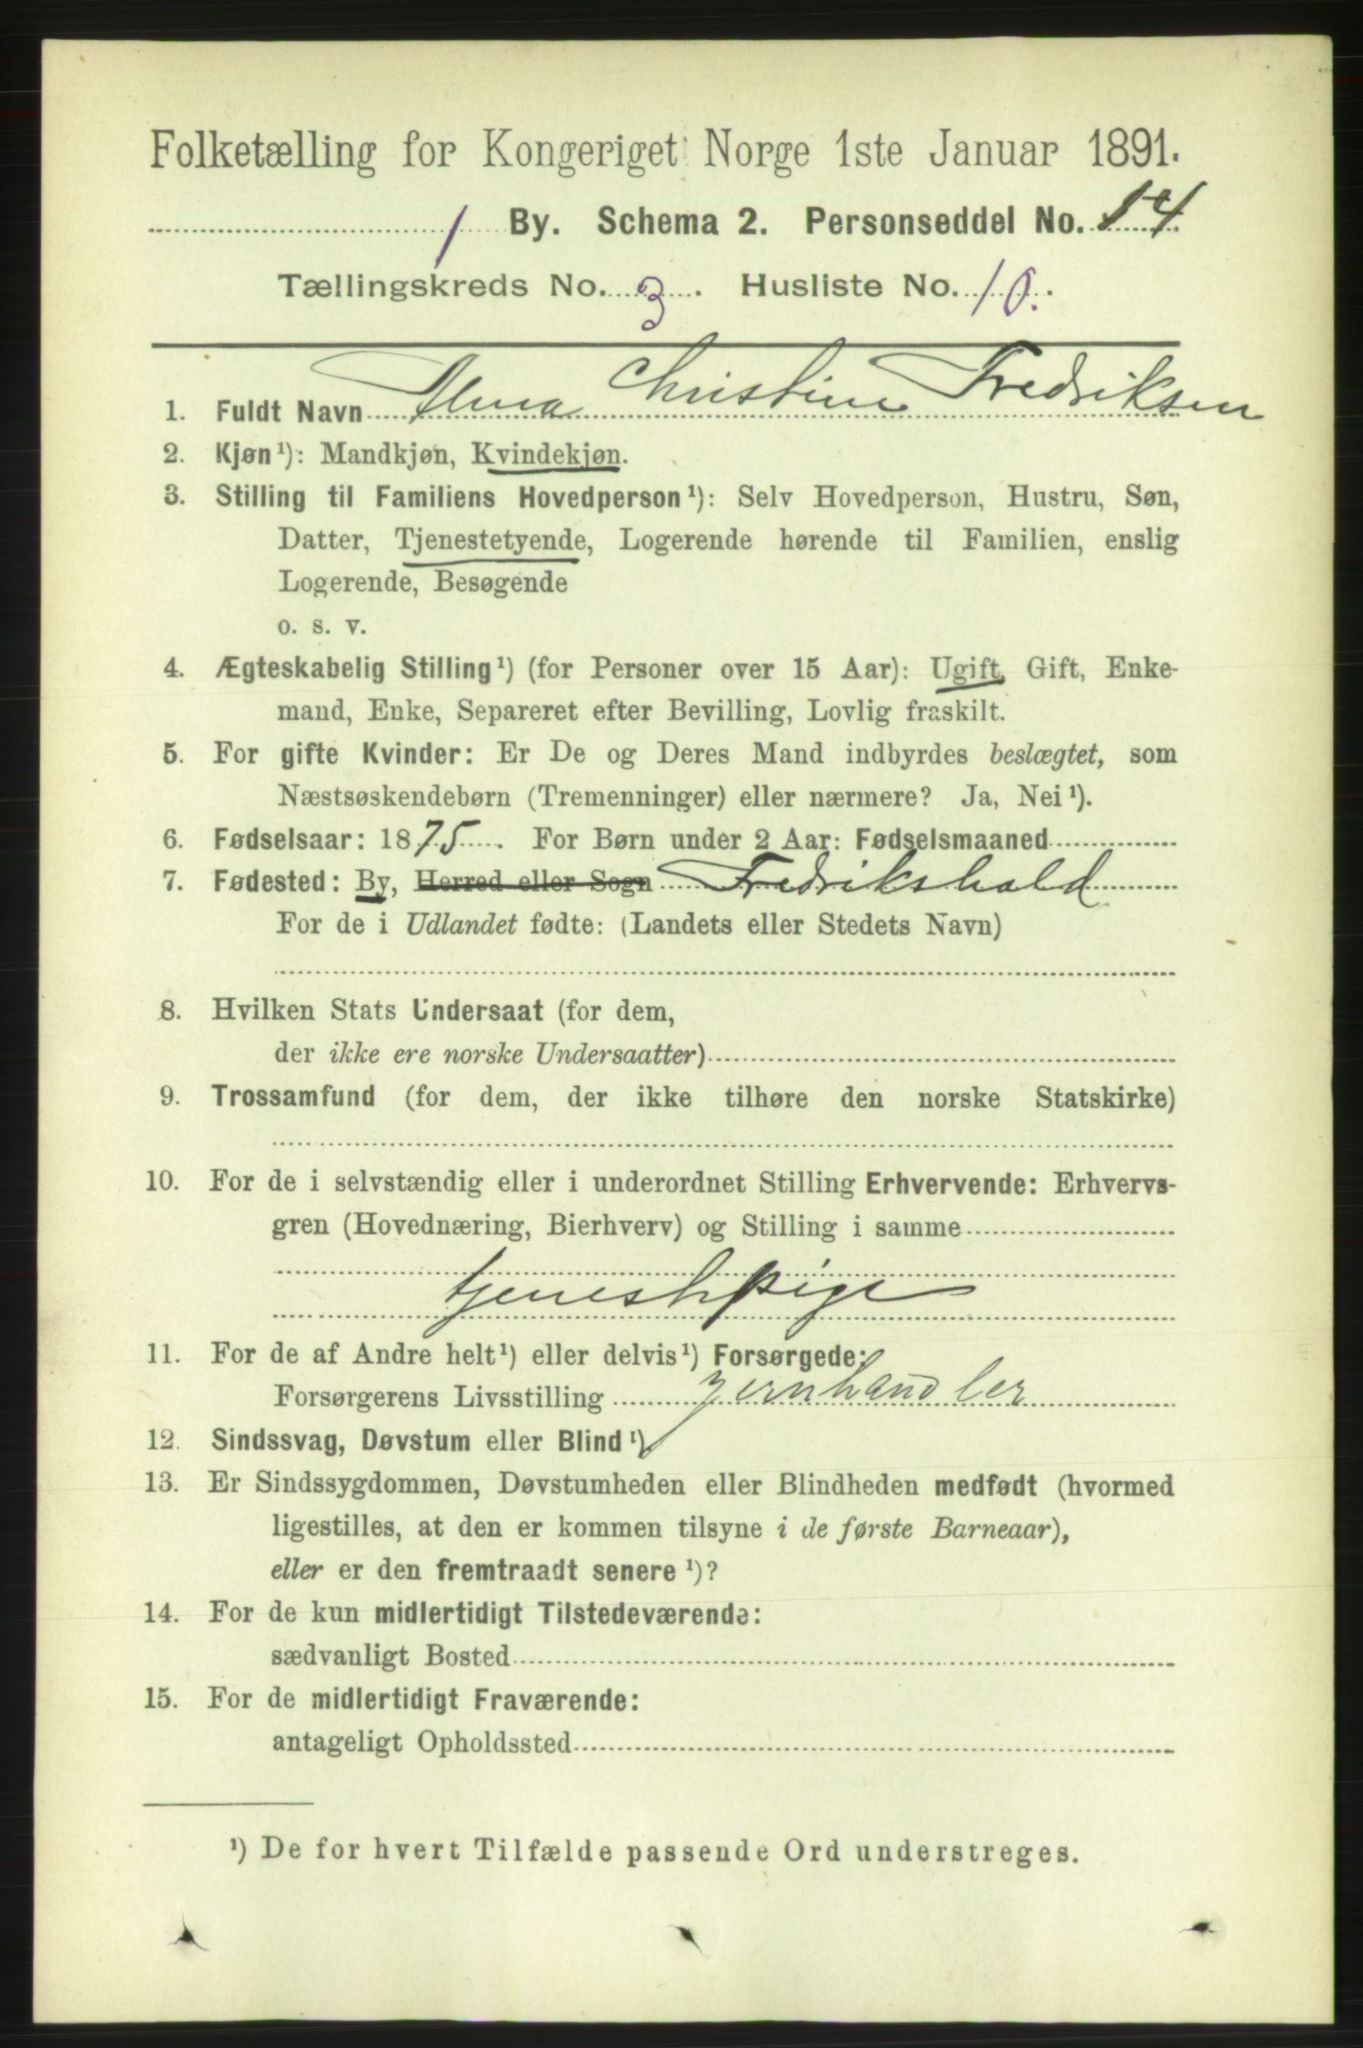 Folketælling for Kongeriget Norge 1ste Januar 1891.
1 By. Schema 2. Personseddel No. 14
Tællingskreds No. 3. Husliste No. 10.
1. Fuldt Navn Alma Christine Fredriksen
2. Kjøn¹): Mandkjøn, Kvindekjøn.
3. Stilling til Familiens Hovedperson¹): Selv Hovedperson, Hustru, Søn,
Datter, Tjenestetyende, Logerende hørende til Familien, enslig
Logerende, Besøgende
o. s. v.
4. Ægteskabelig Stilling¹) (for Personer over 15 Aar): Ugift, Gift, Enke-
mand, Enke, Separeret efter Bevilling, Lovlig fraskilt.
5. For gifte Kvinder: Er De og Deres Mand indbyrdes beslægtet, som
Næstsøskendebørn (Tremenninger) eller nærmere? Ja, Nei¹).
6. Fødselsaar: 1875. For Børn under 2 Aar: Fødselsmaaned
7. Fødested: By, Herred eller Sogn Fredrikshald
For de i Udlandet fødte: (Landets eller Stedets Navn)
8. Hvilken Stats Undersaat (for dem,
der ikke ere norske Undersaatter)
9. Trossamfund (for dem, der ikke tilhøre den norske Statskirke)
10. For de i selvstændig eller i underordnet Stilling Erhvervende: Erhvervs-
gren (Hovednæring, Bierhverv) og Stilling i samme
tjenestepige
11. For de af Andre helt¹) eller delvis¹) Forsørgede:
Forsørgerens Livsstilling Jernhandler
12. Sindssvag, Døvstum eller Blind¹)
13. Er Sindssygdommen, Døvstumheden eller Blindheden medfødt (hvormed
ligestilles, at den er kommen tilsyne i de første Barneaar),
eller er den fremtraadt senere¹)?
14. For de kun midlertidigt Tilstedeværende:
sædvanligt Bosted
15. For de midlertidigt Fraværende:
antageligt Opholdssted
¹) De for hvert Tilfælde passende Ord understreges.